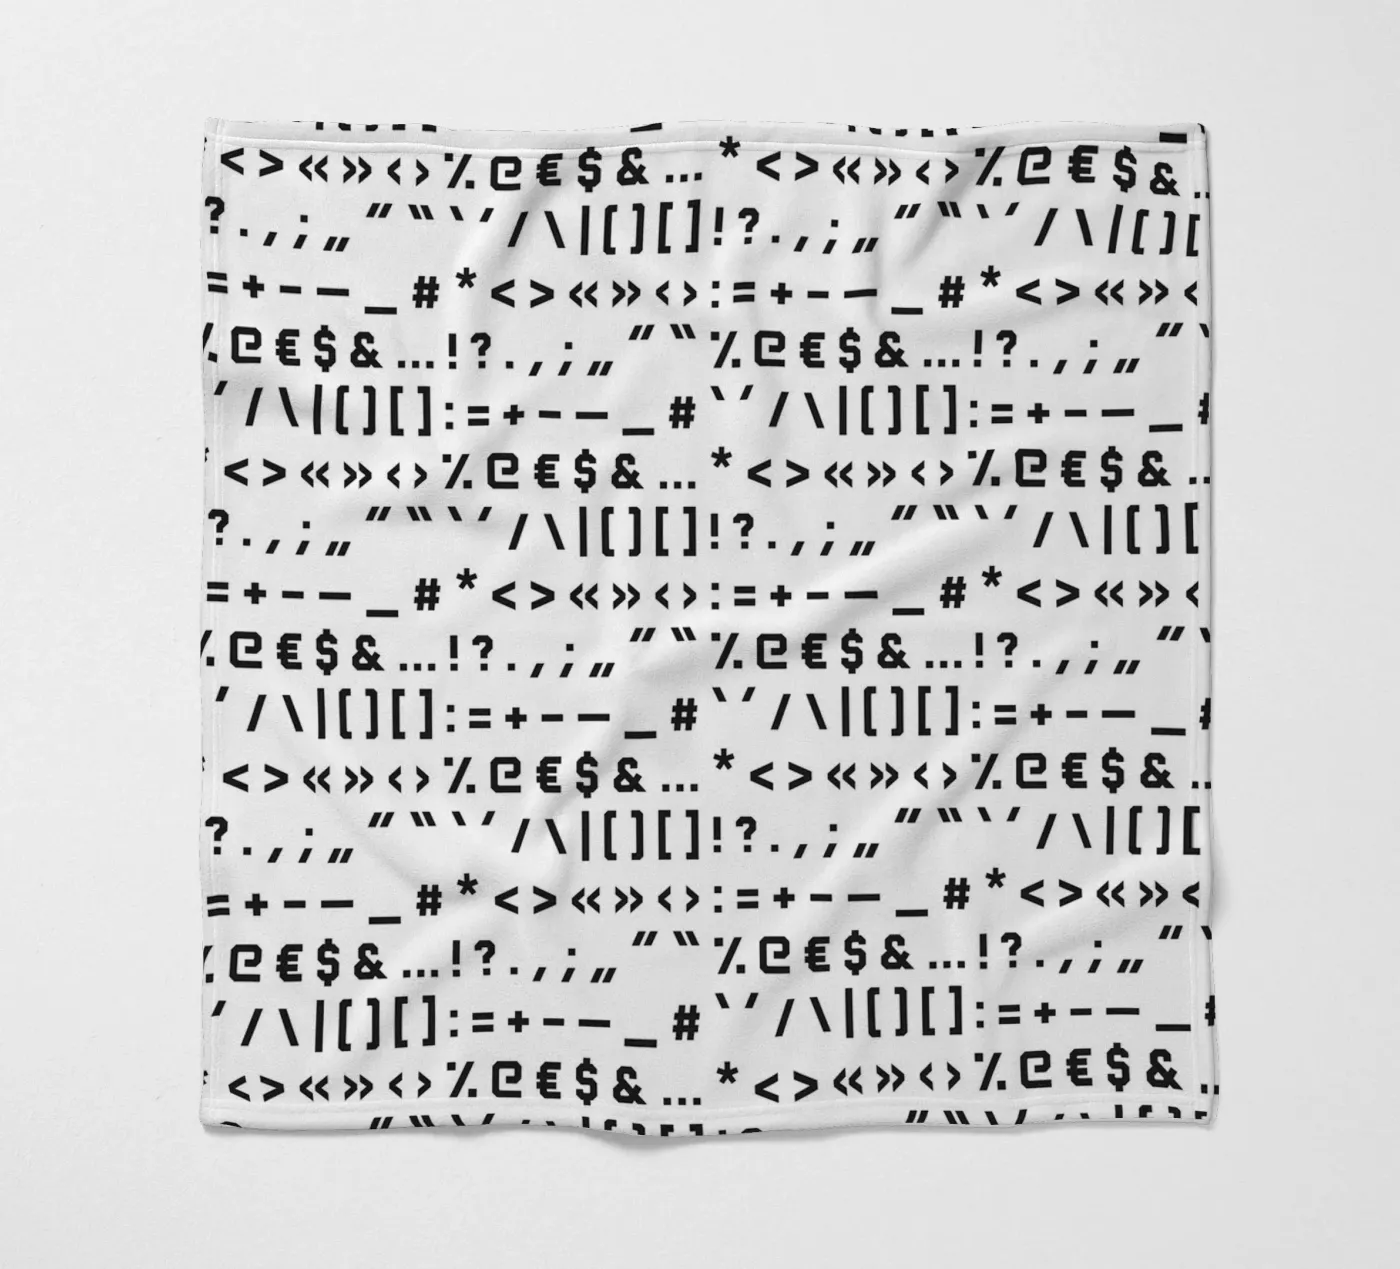 < > « » ‹ › % @ € $ & … * < > « » ‹ › % @ € $ & …
? . , ; „ ” “ ‘ ’ / \ | ( ) [ ] ! ? . , ; „ ” “ ‘ ’ / \ | ( ) [
= + - — _ # * < > « » ‹ › : = + - — _ # * < > « » ‹
% @ € $ & … ! ? . , ; „ ” “ % @ € $ & … ! ? . , ; „ ” ‘
’ / \ | ( ) [ ] : = + - — _ # ‘ ’ / \ | ( ) [ ] : = + - — _ #
* < > « » ‹ › % @ € $ & … * < > « » ‹ › % @ € $ & …
? . , ; „ ” “ ‘ ’ / \ | ( ) [ ] ! ? . , ; „ ” “ ‘ ’ / \ | ( ) [
= + - — _ # * < > « » ‹ › : = + - — _ # * < > « » ‹
% @ € $ & … ! ? . , ; „ ” “ % @ € $ & … ! ? . , ; „ ” ‘
’ / \ | ( ) [ ] : = + - — _ # ‘ ’ / \ | ( ) [ ] : = + - — _ #
* < > « » ‹ › % @ € $ & … * < > « » ‹ › % @ € $ & …
? . , ; „ ” “ ‘ ’ / \ | ( ) [ ] ! ? . , ; „ ” “ ‘ ’ / \ | ( ) [
= + - — _ # * < > « » ‹ › : = + - — _ # * < > « » ‹
% @ € $ & … ! ? . , ; „ ” “ % @ € $ & … ! ? . , ; „ ” ‘
’ / \ | ( ) [ ] : = + - — _ # ‘ ’ / \ | ( ) [ ] : = + - — _ #
* < > « » ‹ › % @ € $ & … * < > « » ‹ › % @ € $ & …